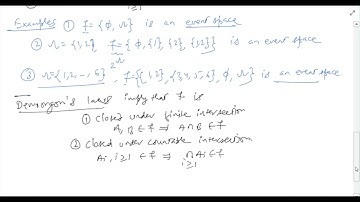 Examples ① f = {φ, Ω} is an event space
② Ω = {1,2}, f = {φ, {1}, {2}, {1,2}} is an event space
2^Ω
③ Ω = {1,2,..,6}, f = {{1,2}, {3,4,5,6}, φ, Ω} is an event space
Demorgon's laws imply that f is
① closed under finite intersection
A, B ∈ f ⇒ A ∩ B ∈ f
② closed under countable intersection
Ai, i≥1 ∈ f ⇒ ∩ Ai ∈ f
i≥1